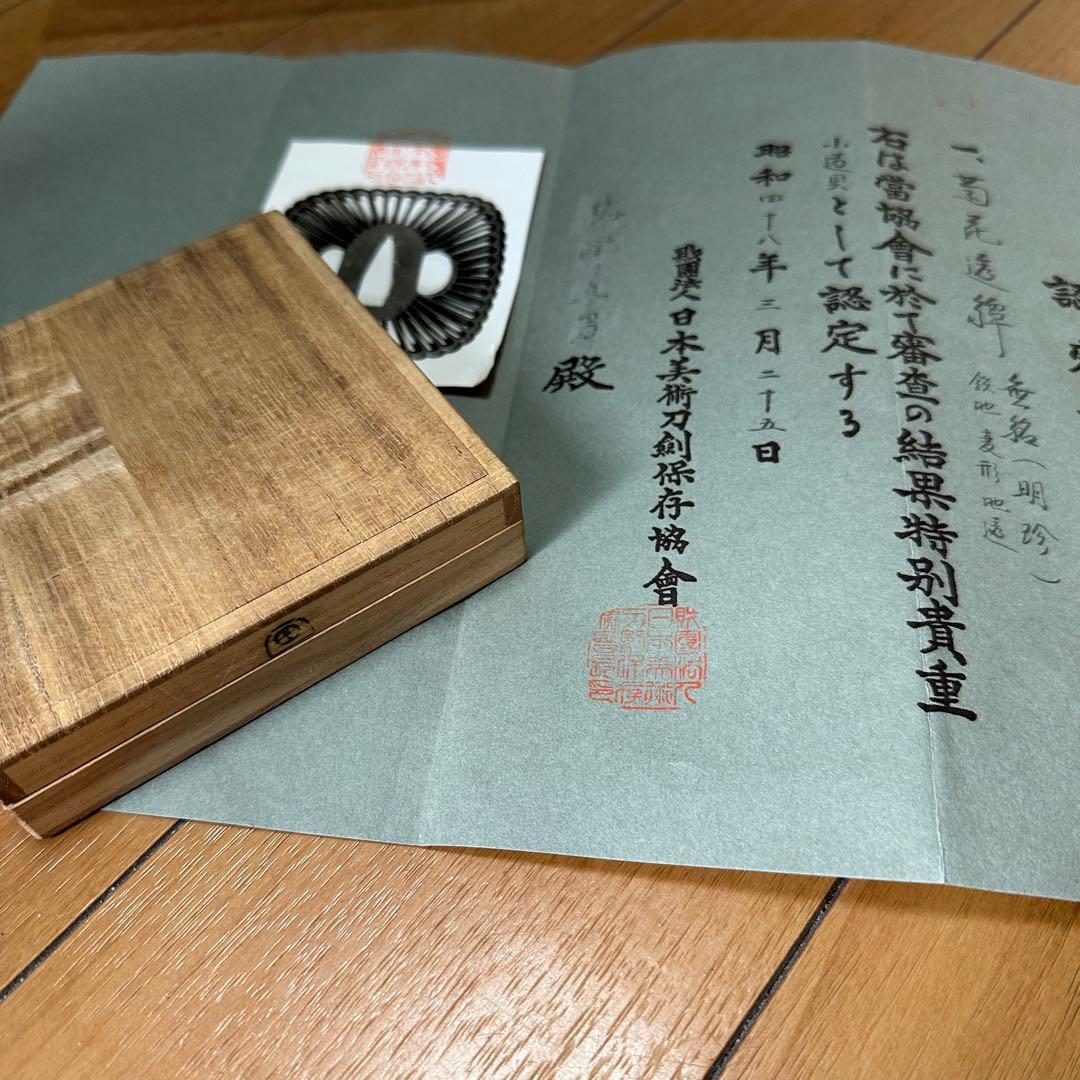 認定
一、菊花透鐔 無銘(明珍)
鉄地 変形 地透
右は當協會に於て審査の結果特別貴重
小道具として認定する
昭和四十八年三月二十五日
財團法人日本美術刀劍保存協會
殿